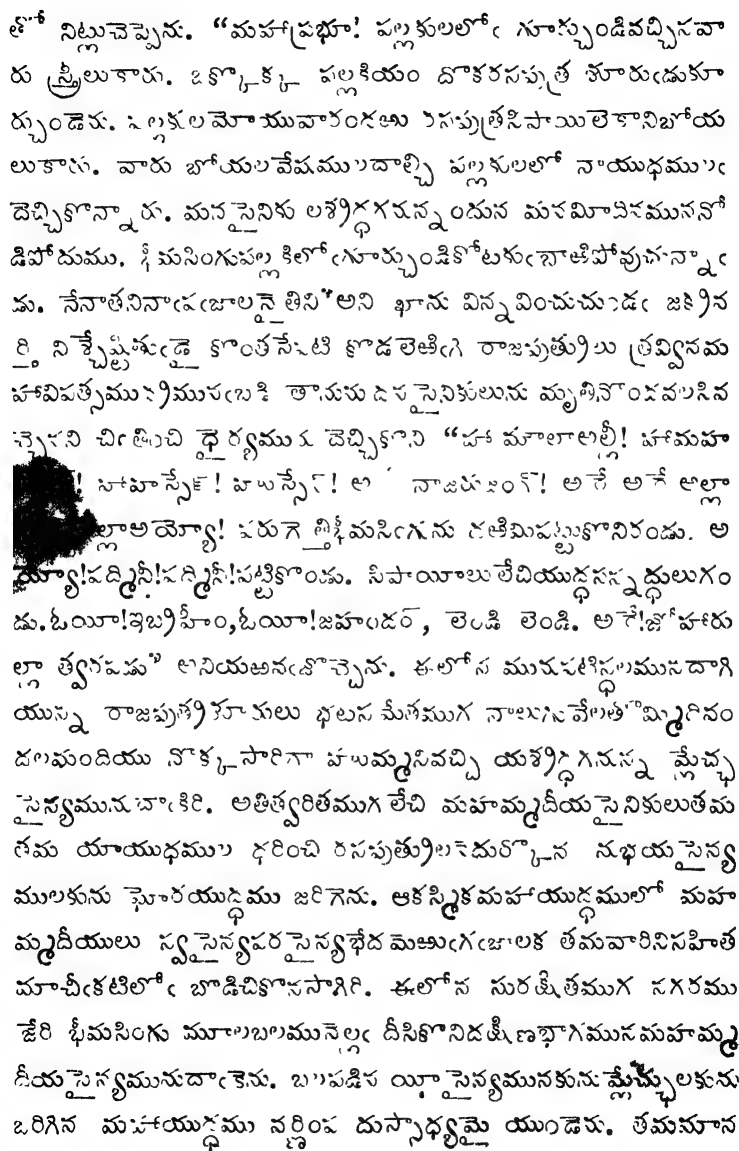 తో నిట్లుచెప్పెను. “మహాప్రభూ! పల్లకులలోఁ గూర్చుండివచ్చినవా
రు స్త్రీలుకారు. ఒక్కొక్క పల్లకియం దొకరసపుత్ర శూరుఁడుకూ
ర్చుండెను. పల్లకులమోయువారందఱు రసపుత్రసిపాయిలెకానిబోయ
లుకారు. వారు బోయలవేషములదాల్చి పల్లకులలో నాయుధములఁ
దెచ్చికొన్నారు. మనసైనికు లశ్రద్ధగనున్నందున మనమీదినముననో
డిపోదుము. భీమసింగుపల్లకిలోఁగూర్చుండికోటకుఁబాఱిపోవుచున్నాఁ
డు. నేనాతనినాఁపఁజాలనైతిని” అని ఖాను విన్నవించుచుండఁ జక్రవ
ర్తి నిశ్చేష్టితుఁడై కొంతసేపటి కొడలెఱిఁగి రాజపుత్రులు త్రవ్వినమ
హావిపత్సముద్రమునఁబడి తానును దనసైనికులును మృతినొందవలసిన
చ్చెనని చింతించి ధైర్యముఁ దెచ్చికొని “హా మాలాఅల్లీ! హామహ
! హాహస్సేన్! హలుస్సేన్! అ నాజరుజంగ్! అరే అరే అల్లా
ల్లాఅయ్యో! పరుగెత్తిభీమసింగును దఱిమిపట్టుకొనిరండు. అ
య్యో!పద్మినీ!పద్మినీ!పట్టికొండు. సిపాయీలులేచియుద్ధసన్నద్ధులుగం
డు.ఓయీ!ఇబ్రహీం,ఓయీ!జహందర్, లెండి లెండి. అరే!జోహారు
ల్లా త్వరపడు” అనియఱవఁజొచ్చెను. ఈలోన మునుపటిస్థలమునదాగి
యున్న రాజపుత్రకూమలు భటసమేతముగ నాలుగువేలతొమ్మిదినం
దలమందియు నొక్కసారిగా హుమ్మనివచ్చి యశ్రద్ధగనున్న మ్లేచ్ఛ
సైన్యమునుదాఁకిరి. అతిత్వరితముగలేచి మహమ్మదీయసైనికులుతమ
తమ యాయుధముల ధరించి రసపుత్రులనెదుర్కొన నుభయసైన్య
ములకును ఘోరయుద్ధము జరిగెను. ఆకస్మికమహాయుద్ధములో మహ
మ్మదీయులు స్వసైన్యపరసైన్యభేదమెఱుఁగఁజాలక తమవారినిసహిత
మాచీఁకటిలోఁ బొడిచికొనసాగిరి. ఈలోన సురక్షితముగ నగరము
జేరి భీమసింగు మూలబలమునెల్లఁ దీసికొనిదక్షిణభాగమునమహమ్మ
దీయసైన్యమునుదాఁకెను. బలపడిన యీసైన్యమునకును మ్లేచ్ఛులకును
ఒరిగిన మహాయుద్ధము వర్ణింప దుస్సాధ్యమై యుండెను. తమమాన